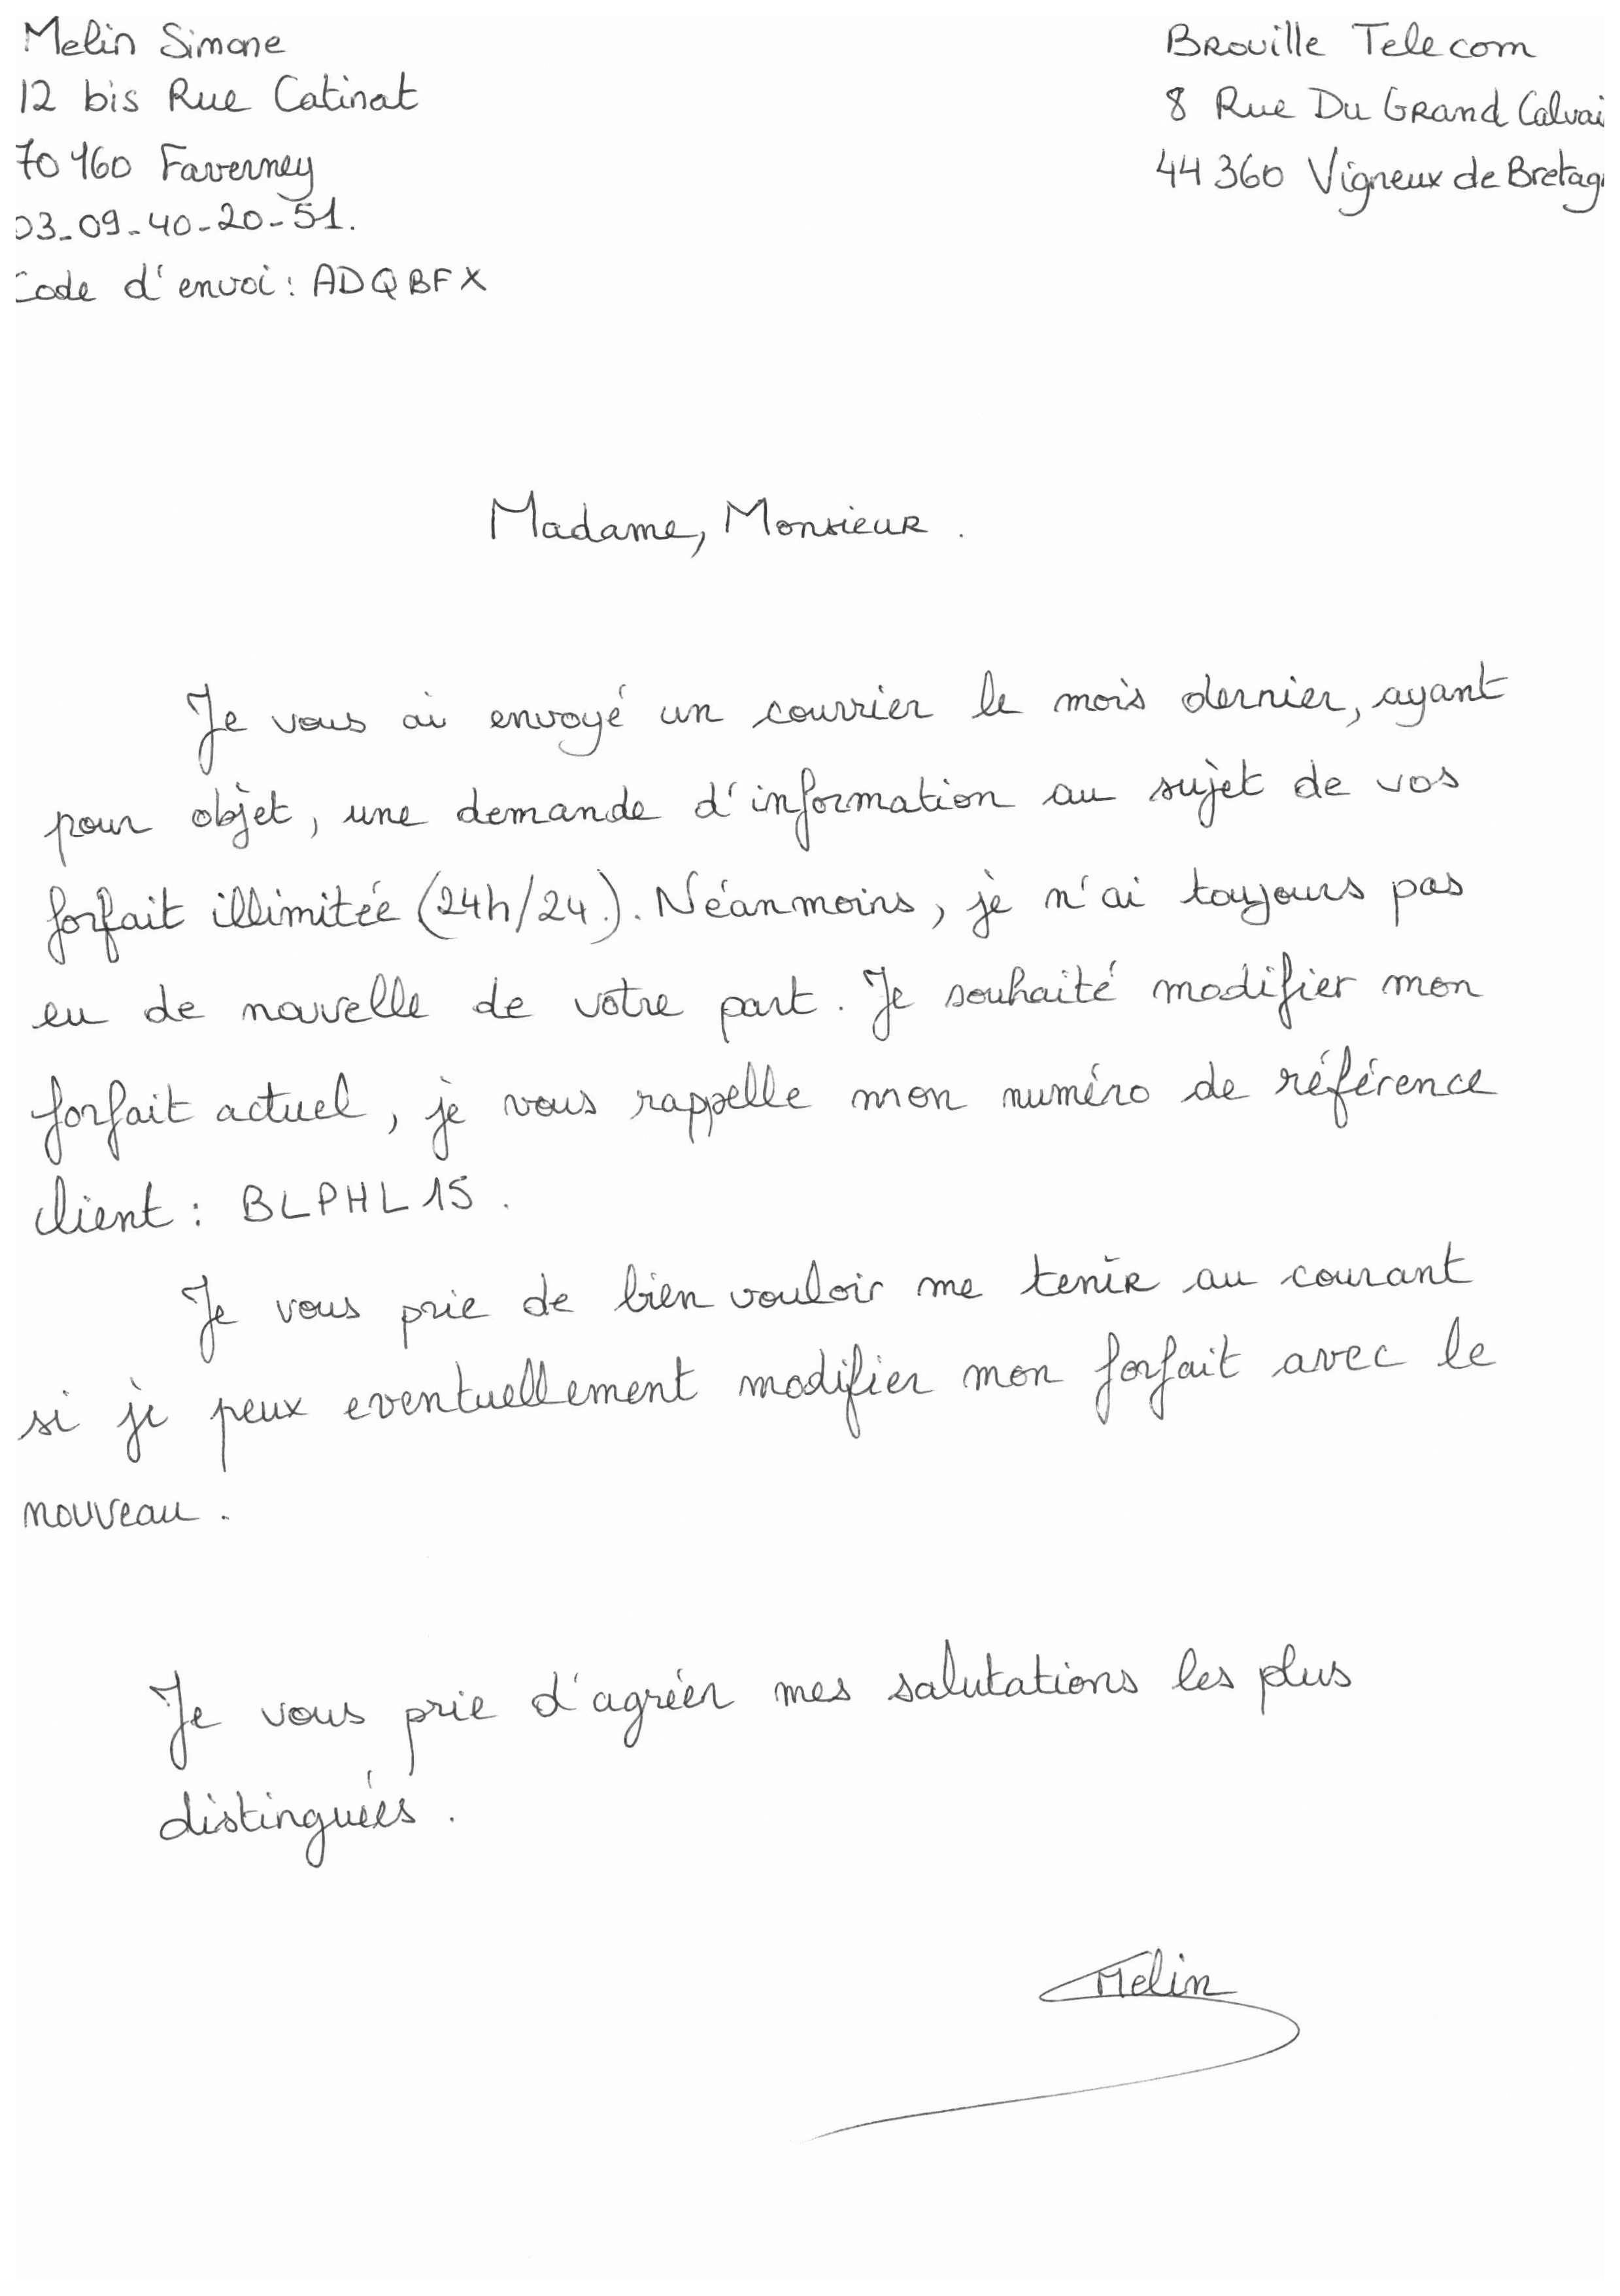 Melin Simone
12 bis Rue Catinat
70160 Faverney
03-09-40-20-51.
Code d'envoi : ADQBFX
Brouille Telecom
8 Rue Du Grand Calvai
44360 Vigneux de Bretag
Madame, Monsieur.
Je vous ai envoyé un courrier le mois dernier, ayant
pour objet, une demande d'information au sujet de vos
forfait illimitée (24h/24.). Néanmoins, je n'ai toujours pas
eu de nouvelle de votre part. Je souhaité modifier mon
forfait actuel, je vous rappelle mon numéro de référence
client : BLPHL15.
Je vous prie de bien vouloir me tenir au courant
si je peux eventuellement modifier mon forfait avec le
nouveau.
Je vous prie d'agréer mes salutations les plus
distinguées.
Melin